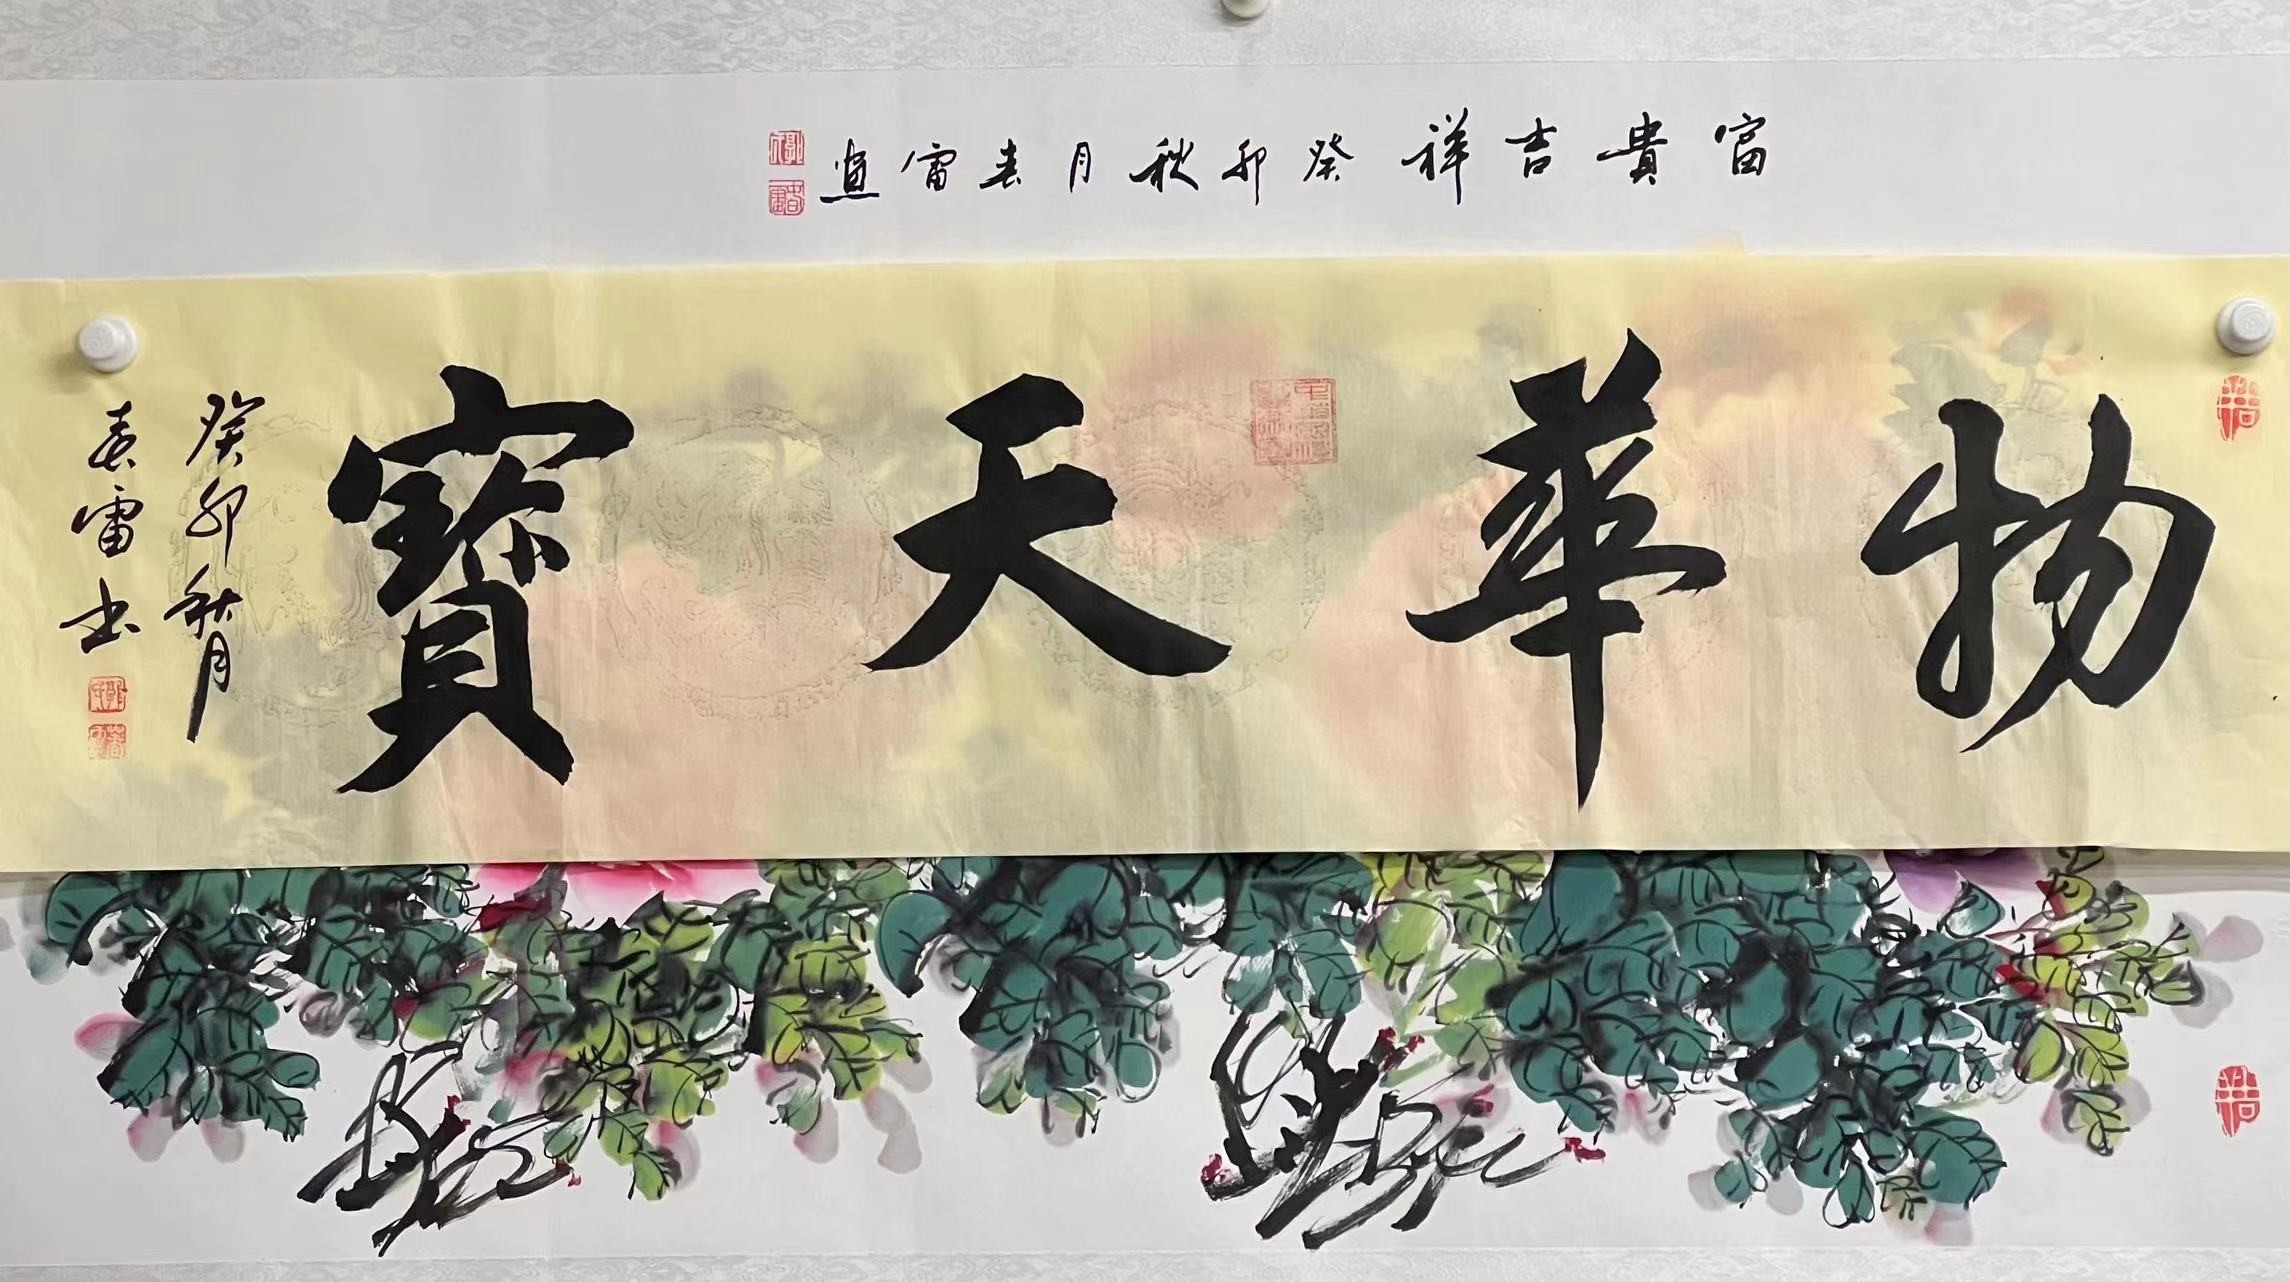 富貴吉祥 癸卯秋月春雷畫
物華天寶
癸卯秋月
春雷书